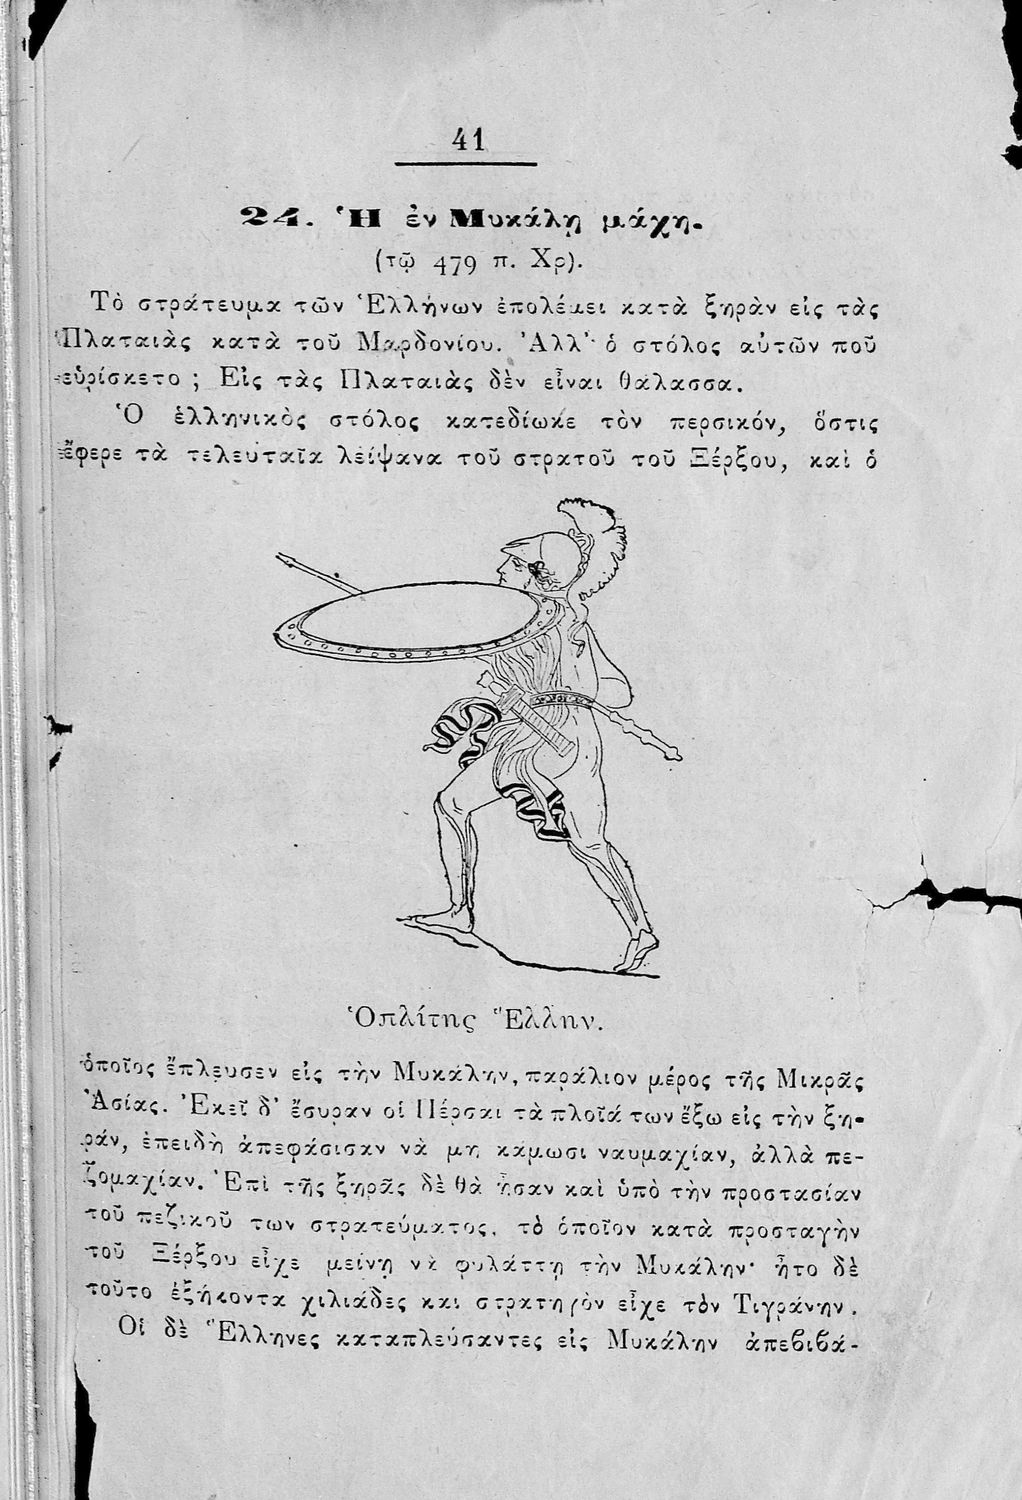 41
24. Ἡ ἐν Μυκάλῃ μάχη.
(τῷ 479 π. Χρ).
Τὸ στράτευμα τῶν Ἑλλήνων ἐπολέμει κατὰ ξηρὰν εἰς τὰς
Πλαταιὰς κατὰ τοῦ Μαρδονίου. Ἀλλ' ὁ στόλος αὐτῶν ποῦ
εὑρίσκετο ; Εἰς τὰς Πλαταιὰς δὲν εἶναι θάλασσα.
Ὁ ἑλληνικὸς στόλος κατεδίωκε τὸν περσικόν, ὅστις
ἔφερε τὰ τελευταῖα λείψανα τοῦ στρατοῦ τοῦ Ξέρξου, καὶ ὁ
Ὁπλίτης Ἕλλην.
ὁποῖος ἔπλευσεν εἰς τὴν Μυκάλην, παράλιον μέρος τῆς Μικρᾶς
Ἀσίας. Ἐκεῖ δ' ἔσυραν οἱ Πέρσαι τὰ πλοῖά των ἔξω εἰς τὴν ξη-
ράν, ἐπειδὴ ἀπεφάσισαν νὰ μὴ κάμωσι ναυμαχίαν, ἀλλὰ πε-
ζομαχίαν. Ἐπὶ τῆς ξηρᾶς δὲ θὰ ἦσαν καὶ ὑπὸ τὴν προστασίαν
τοῦ πεζικοῦ των στρατεύματος, τὸ ὁποῖον κατὰ προσταγὴν
τοῦ Ξέρξου εἶχε μείνῃ νὰ φυλάττῃ τὴν Μυκάλην· ἦτο δὲ
τοῦτο ἑξήκοντα χιλιάδες καὶ στρατηγὸν εἶχε τὸν Τιγράνην.
Οἱ δὲ Ἕλληνες καταπλεύσαντες εἰς Μυκάλην ἀπεβιβά-